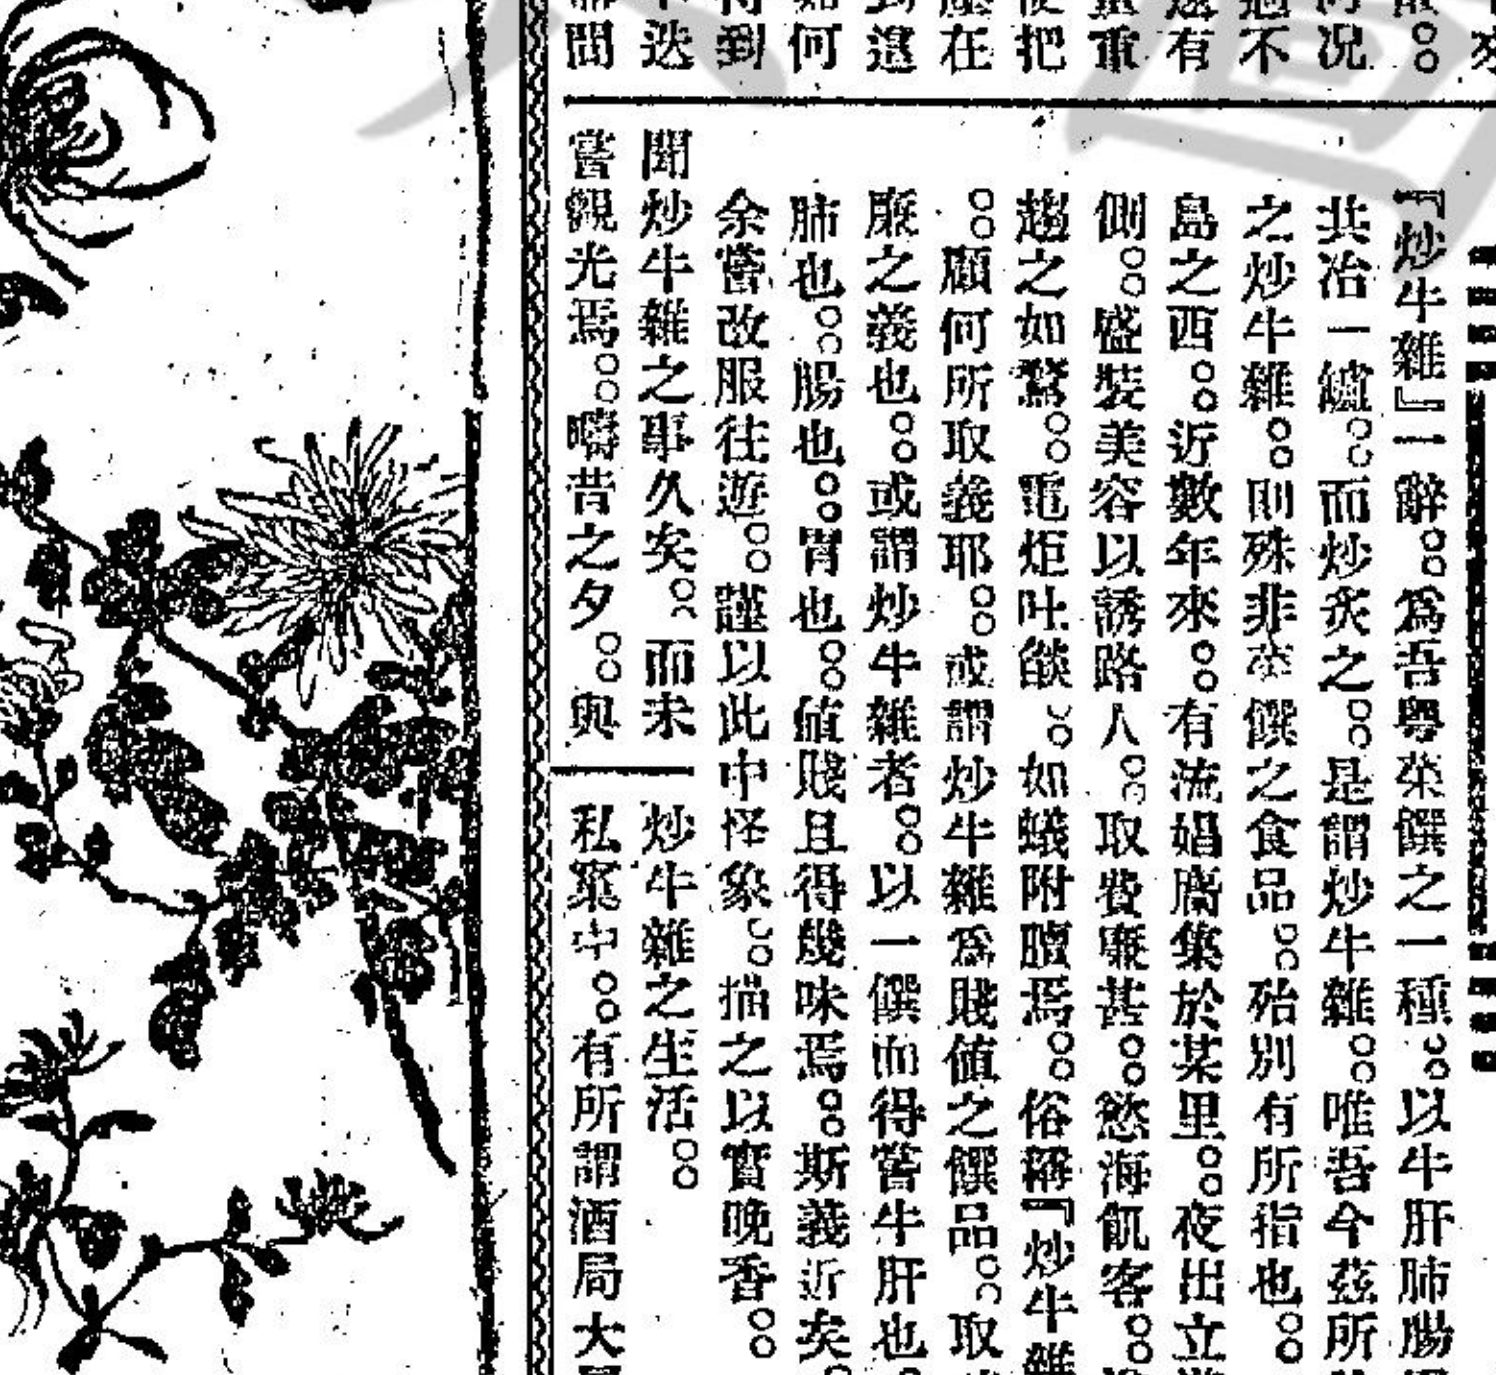 來
況
過不
還有
重
便把
在
到這
如何
得到
迭
間
『炒牛雜』一辭。。爲吾粵菜饌之一種。。以牛肝肺腸
共冶一爐。。而炒炙之。。是謂炒牛雜。。唯吾今茲所
之炒牛雜。。則殊非菜饌之食品。。殆別有所指也。。
島之西。。近數年來。。有流娼麕集於某里。。夜出立
側。。盛裝美容以誘路人。。取費廉甚。。慾海飢客。。
趨之如鶩。。電炬吐燄。。如蟻附羶焉。。俗稱『炒牛雜
。。顧何所取義耶。。或謂炒牛雜爲賤値之饌品。。取
廉之義也。。或謂炒牛雜者。。以一饌而得嘗牛肝也。
肺也。。腸也。。胃也。。値賤且得幾味焉。。斯義近矣。
余嘗改服往遊。。謹以此中怪象。。描之以實晚香。。
聞炒牛雜之事久矣。。而未
嘗觀光焉。。疇昔之夕。。與
炒牛雜之生活。。
私窠中。。有所謂酒局大